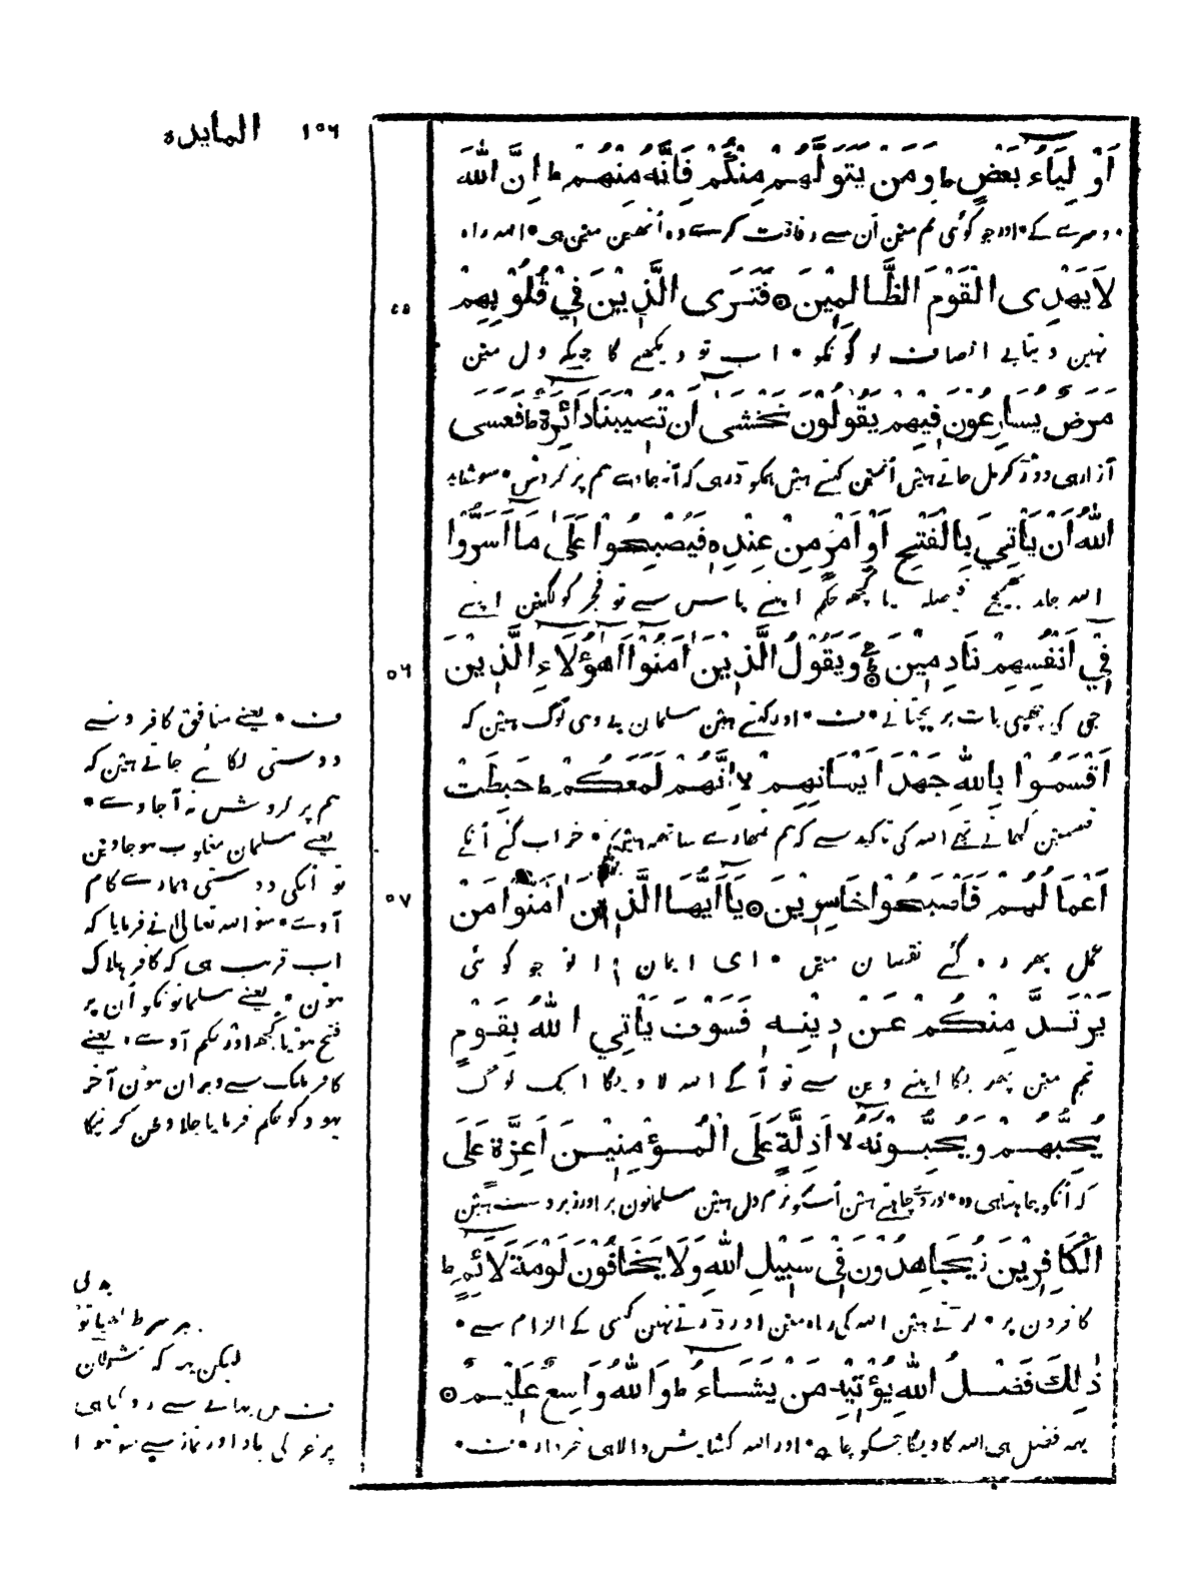 ١٥٦ المايده
اَوْلِيَاءُ بَعْضٍ ط وَمَنْ يَتَوَلَّهُمْ مِنْكُمْ فَاِنَّهُ مِنْهُمْ ط اِنَّ اللّٰهَ
دوسرے کے • اور جو کوئی تم مین اُن سے رفاقت کرے وہ اُنھین مین ہی • اللہ راہ
لَايَهْدِى الْقَوْمَ الظَّالِمِيْنَ ۞ فَتَرَى الَّذِيْنَ فِيْ قُلُوْبِهِمْ
نہین دیتا بے انصاف لوگونکو • اب تو دیکھے گا جنکے دل مین
مَرَضٌ يُسَارِعُوْنَ فِيْهِمْ يَقُوْلُوْنَ نَخْشٰى اَنْ تُصِيْبَنَا دَائِرَةٌ ط فَعَسَى
آزار ہی دوڑ کر مل جاتے ہین اُنمین کہتے ہین ہمکو ڈر ہی کہ آ نہ جاوے ہم پر گردش • سو شاید
اللّٰهُ اَنْ يَأْتِيَ بِالْفَتْحِ اَوْ اَمْرٍ مِنْ عِنْدِهٖ فَيُصْبِحُوْا عَلٰى مَا اَسَرُّوْا
اللہ جلد بھیجے فیصلہ یا کچھ حکم اپنے پاس سے تو فجر کو لگین اپنے
فِيْ اَنْفُسِهِمْ نَادِمِيْنَ ۞ وَيَقُوْلُ الَّذِيْنَ اٰمَنُوْا اَهٰؤُلَاءِ الَّذِيْنَ
جی کی چھپی بات پر پچتانے • ف • اور کہتے ہین مسلمان یے وہی لوگ ہین کہ
اَقْسَمُوْا بِاللّٰهِ جَهْدَ اَيْمَانِهِمْ لا اِنَّهُمْ لَمَعَكُمْ ط حَبِطَتْ
قسمین کھاتے تھے اللہ کی تاکید سے کہ ہم تمھارے ساتھ ہین • خراب گئے اُنکے
اَعْمَالُهُمْ فَاَصْبَحُوْا خَاسِرِيْنَ ۞ يَااَيُّهَا الَّذِيْنَ اٰمَنُوْا مَنْ
عمل پھر رہ گئے نقصان مین • ای ایمان والو جو کوئی
يَرْتَدَّ مِنْكُمْ عَنْ دِيْنِهٖ فَسَوْفَ يَأْتِي اللّٰهُ بِقَوْمٍ
تم مین پھریگا اپنے دین سے تو آگے اللہ لاویگا ایک لوگ
يُحِبُّهُمْ وَيُحِبُّوْنَهُ لا اَذِلَّةٍ عَلَى الْمُؤْمِنِيْنَ اَعِزَّةٍ عَلَى
کہ اُنکو چاہتا ہی وہ • اور وے چاہتے ہین اُسکو نرم دل ہین مسلمانون پر اور زبردست ہین
الْكَافِرِيْنَ ز يُجَاهِدُوْنَ فِيْ سَبِيْلِ اللّٰهِ وَلَا يَخَافُوْنَ لَوْمَةَ لَائِمٍ ط
کافرون پر • لڑتے ہین اللہ کی راہ مین اور ڈرتے نہین کسی کے الزام سے •
ذٰلِكَ فَضْلُ اللّٰهِ يُؤْتِيْهِ مَنْ يَشَاءُ ط وَاللّٰهُ وَاسِعٌ عَلِيْمٌ ۞
یہہ فضل ہی اللہ کا دیگا جسکو چاہے • اور اللہ کشایش والا ہی خبردار • ف •
٥٥
٥٦
٥٧
ف • یعنے منافق کافرونسے
دوستی لگائے جاتے ہین کہ
ہم پر گردش نہ آجاوے •
یعنے مسلمان مغلوب ہوجاوین
تو اُنکی دوستی ہمارے کام
آوے • سو اللہ تعالیٰ نے فرمایا کہ
اب قریب ہی کہ کافر ہلاک
ہون • یعنے مسلمانونکو اُن پر
فتح ہو یا کچھ اور حکم آوے • یعنے
کافر ملک سے ویران ہون آخر
یہود کو حکم فرمایا جلا وطن کرنیکا
لیکن یہ کہ